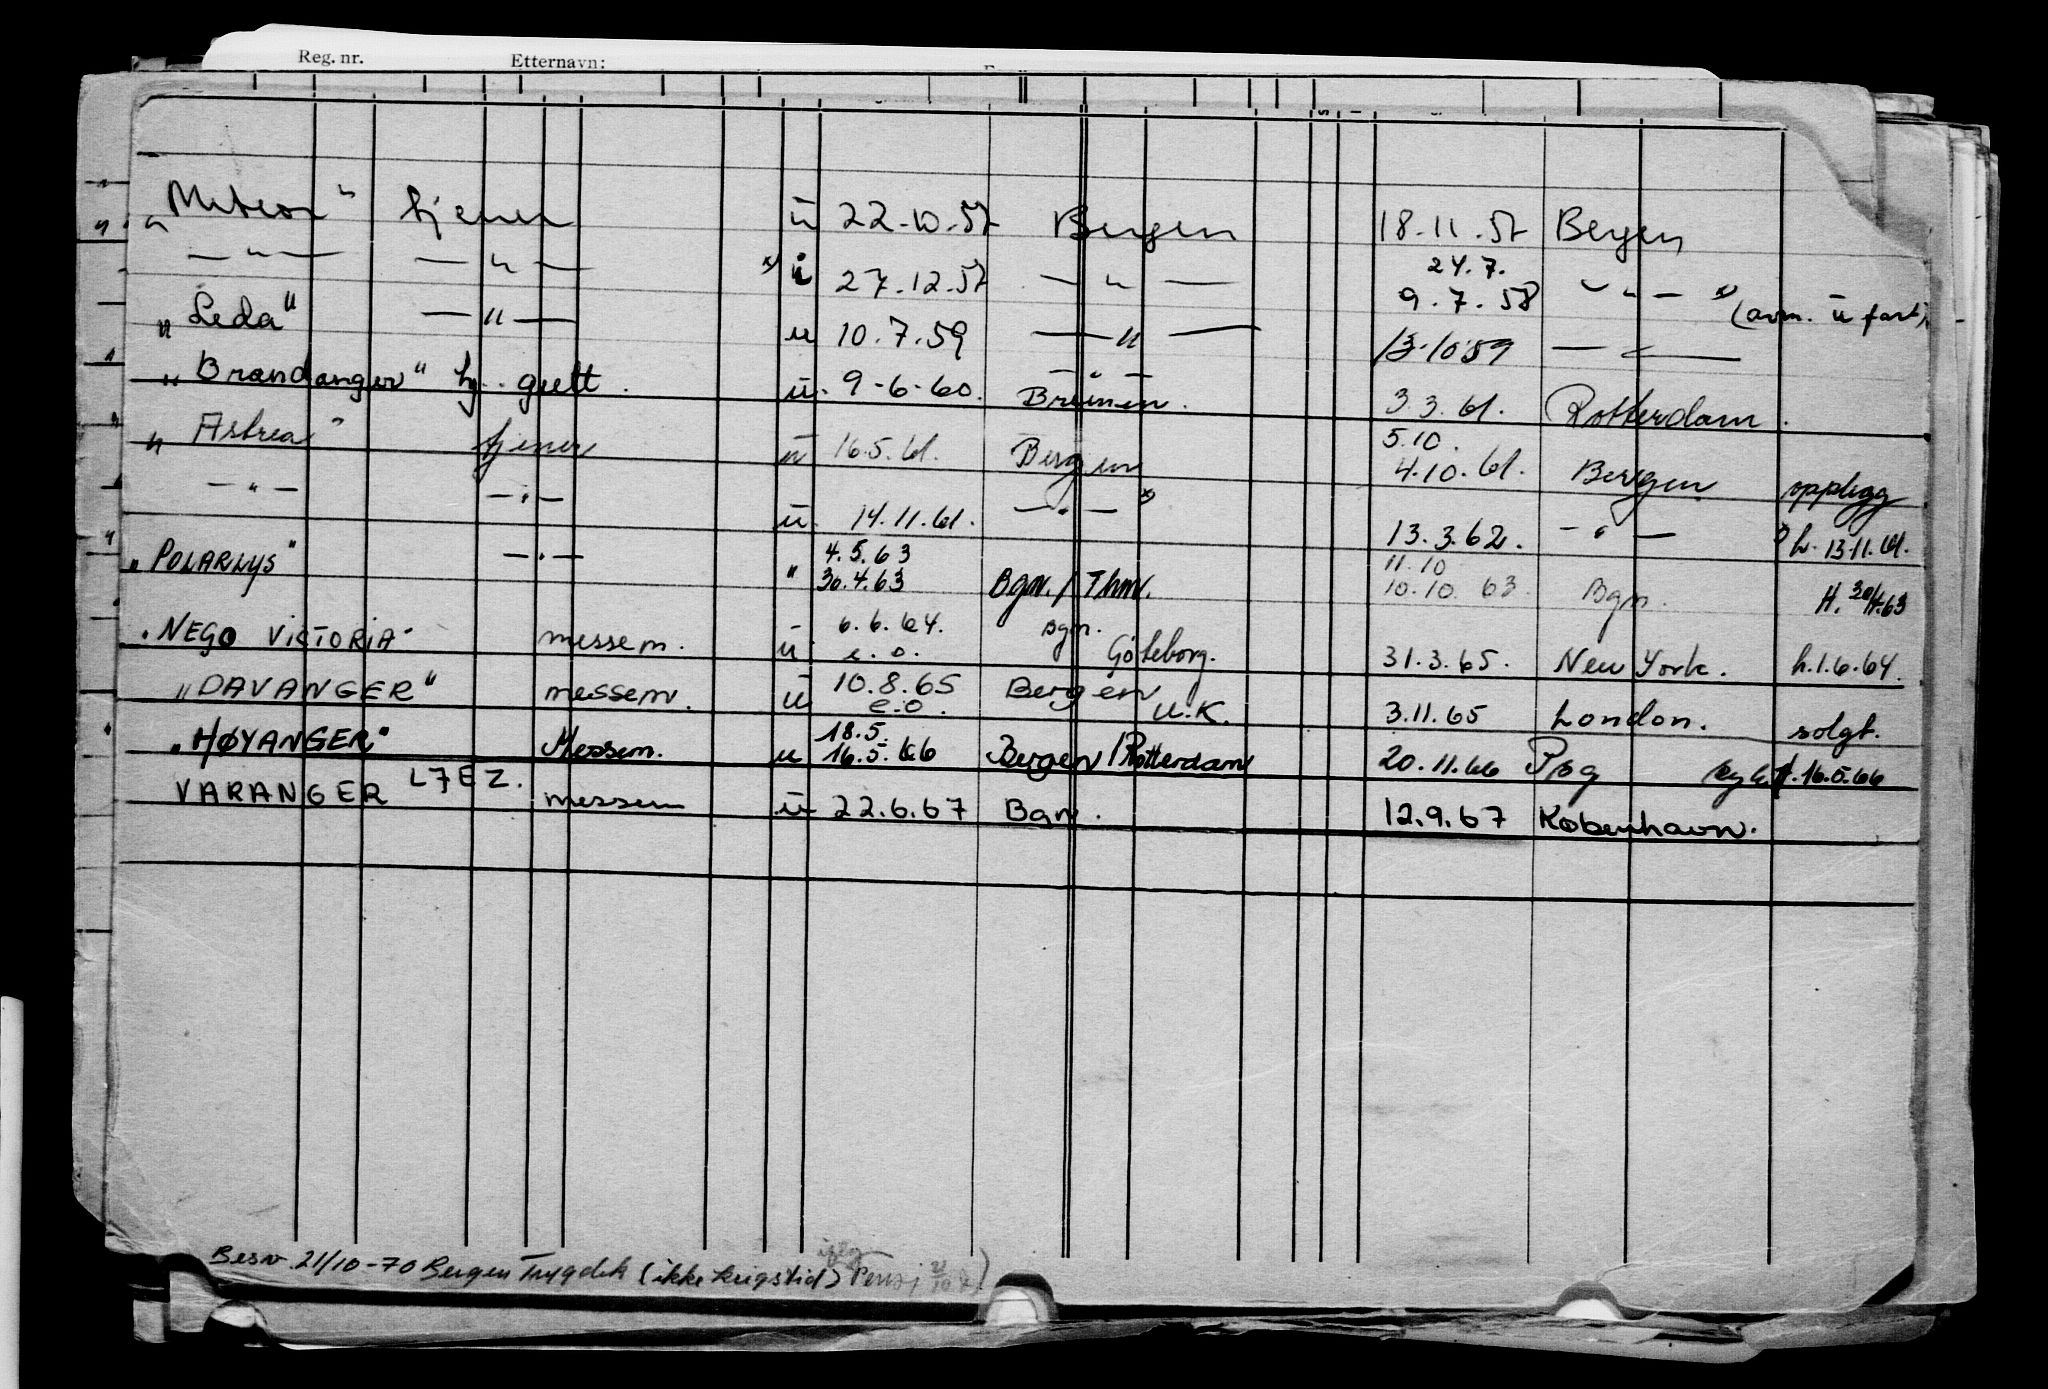 Reg. nr. Etternavn:
„Meteor" tjener ü 22-10-57 Bergen 18.11.57 Bergen
— " — — " — x) ü 27.12.57 — " — 24.7. 9.7.58 — " — x) (avm. ü fart)
„Leda" — " — u 10.7.59 — " — 13.10.59 — " —
„Brandanger" hj. gutt. ü. 9-6-60. — " — Bremen. 3.3.61. Rotterdam.
„Astrea" tjener ü 16.5.61. Bergen 5.10. 4.10.61. Bergen opplegg
— " — — " — ü. 14.11.61. — " — x) 13.3.62. — " — x) h. 13.11.61.
„POLARLYS" — " — " 4.5.63 30.4.63 Bgn. / Thm. 11.10 10.10.63. Bgn. H. 30/4.63
„NEGO VICTORIA" messem. ü 6.6.64. e.o. Bgn. Göteborg. 31.3.65. New York. h.1.6.64.
„DAVANGER" messem. ü 10.8.65 e.o. Bergen U.K. 3.11.65 London. solgt.
„HØYANGER" Messem. u 18.5. 16.5.66 Bergen/Rotterdam 20.11.66 H. 16.5.66
VARANGER L7EZ. messem ü 22.6.67 Bgn. 12.9.67 København.
Besv. 21/10-70 Bergen Trygdek (ikke krigstid)